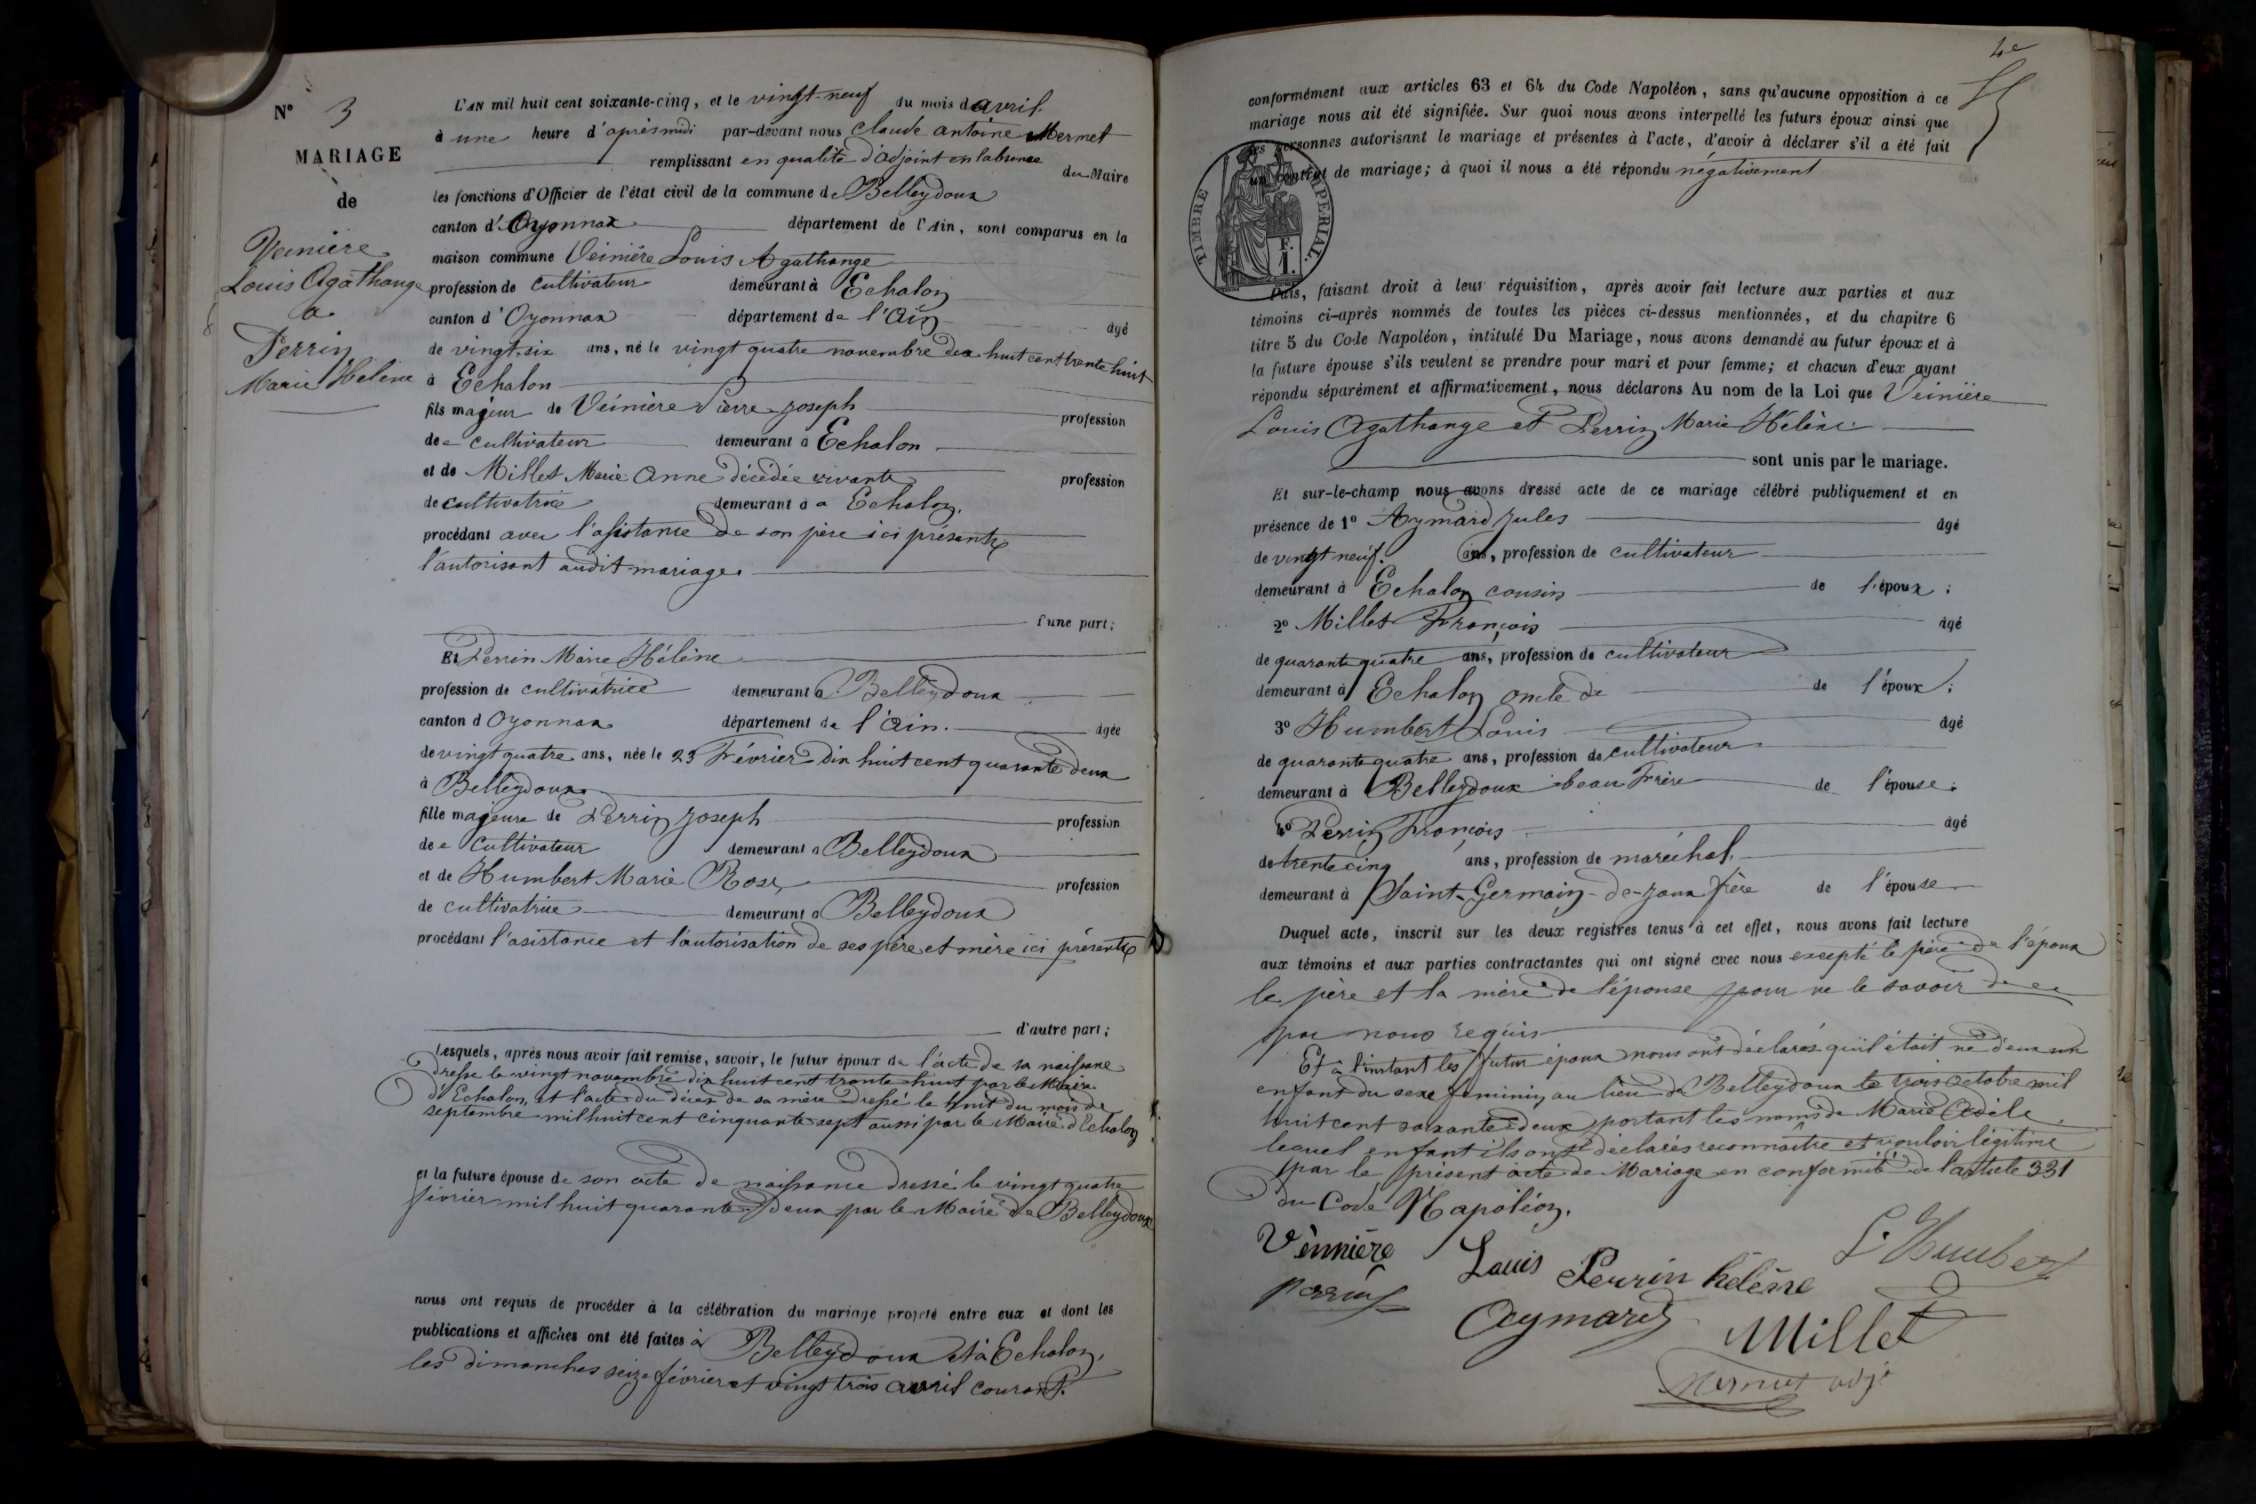 N° 3
MARIAGE
de
Veinière
Louis Agathange
a
Perrin
Marie Hélène
L'AN mil huit cent soixante-cinq, et le vingt-neuf du mois d'avril
à une heure d'après midi par-devant nous Claude antoine Mermet
remplissant en qualité d'adjoint en labsence du Maire
les fonctions d'Officier de l'état civil de la commune de Belleydoux
canton d'Oyonnax département de l'Ain, sont comparus en la
maison commune Veinière Louis Agathange
profession de cultivateur demeurant à Echalon
canton d'Oyonnax département de l'Ain âgé
de vingt-six ans, né le vingt quatre novembre dix huit cent trente huit
à Echalon
fils majeur de Veinière Pierre-Joseph profession
de cultivateur demeurant à Echalon
et de Millet Marie Anne décédée vivante profession
de cultivatrice demeurant à a Echalon.
procédant avec l'assistance de son père ici présent
l'autorisant audit mariage.
d'une part;
Et Perrin Marie Hélène
profession de cultivatrice demeurant à Belleydoux
canton d Oyonnax département de l'Ain. âgée
de vingt quatre ans, née le 23 Février dix huit cent quarante deux
à Belleydoux
fille majeure de Perrin Joseph profession
de cultivateur demeurant à Belleydoux
et de Humbert Marie Rose profession
de cultivatrice demeurant à Belleydoux
procédant l'asistance et l'autorisation de ses père et mère ici présents
d'autre part;
Lesquels, après nous avoir fait remise, savoir, le futur époux de l'acte de sa naissance
dressé le vingt novembre dix huit cent trente huit par le Maire
d'Echalon, et l'acte du décès de sa mère dressé le huit du mois de
septembre mil huit cent cinquante sept aussi par le Maire d'Echalon
et la future épouse de son acte de naissance dressé le vingt quatre
février mil huit quarante deux par le Maire de Belleydoux
nous ont requis de procéder à la célébration du mariage projeté entre eux et dont les
publications et affiches ont été faites à Belleydoux et à Echalon,
les dimanches seize février et vingt trois avril courant.
conformément aux articles 63 et 64 du Code Napoléon, sans qu'aucune opposition à ce
mariage nous ait été signifiée. Sur quoi nous avons interpellé les futurs époux ainsi que
les personnes autorisant le mariage et présentes à l'acte, d'avoir à déclarer s'il a été fait
un contrat de mariage; à quoi il nous a été répondu négativement
TIMBRE IMPÉRIAL.
F.
1.
Puis, faisant droit à leur réquisition, après avoir fait lecture aux parties et aux
témoins ci-après nommés de toutes les pièces ci-dessus mentionnées, et du chapitre 6
titre 5 du Code Napoléon, intitulé Du Mariage, nous avons demandé au futur époux et à
la future épouse s'ils veulent se prendre pour mari et pour femme; et chacun d'eux ayant
répondu séparément et affirmativement, nous déclarons Au nom de la Loi que Veinière
Louis Agathange et Perrin Marie Hélène
sont unis par le mariage.
Et sur-le-champ nous avons dressé acte de ce mariage célébré publiquement et en
présence de 1° Aymard Jules âgé
de vingt neuf. ans, profession de cultivateur
demeurant à Echalon cousin de l'époux;
2° Millet François âgé
de quarante quatre ans, profession de cultivateur
demeurant à Echalon oncle de de l'époux;
3° Humbert Louis âgé
de quarante quatre ans, profession de cultivateur
demeurant à Belleydoux beau Frère de l'épouse;
4° Perrin François âgé
de trente cinq ans, profession de maréchal
demeurant à Saint-Germain-de-Joux frère de l'épouse
Duquel acte, inscrit sur les deux registres tenus à cet effet, nous avons fait lecture
aux témoins et aux parties contractantes qui ont signé avec nous excepté le père de l'époux
le père et la mère de l'épouse pour ne le savoir de ce
par nous requis
Et à l'instant les futur époux nous ont déclarés qu'il était né d'eux un
enfant du sexe féminin au lieu de Belleydoux le trois octobre mil
huit cent soixante deux portant les noms de Marie Adèle
lequel enfant ils ont déclarés reconnaître et vouloir légitimé
par le présent acte de Mariage en conformité de l'article 331
du Code Napoléon.
Vènnière Louis Perrin hélène L. Humbert
perrin Aymard Millet
Mermet adjt